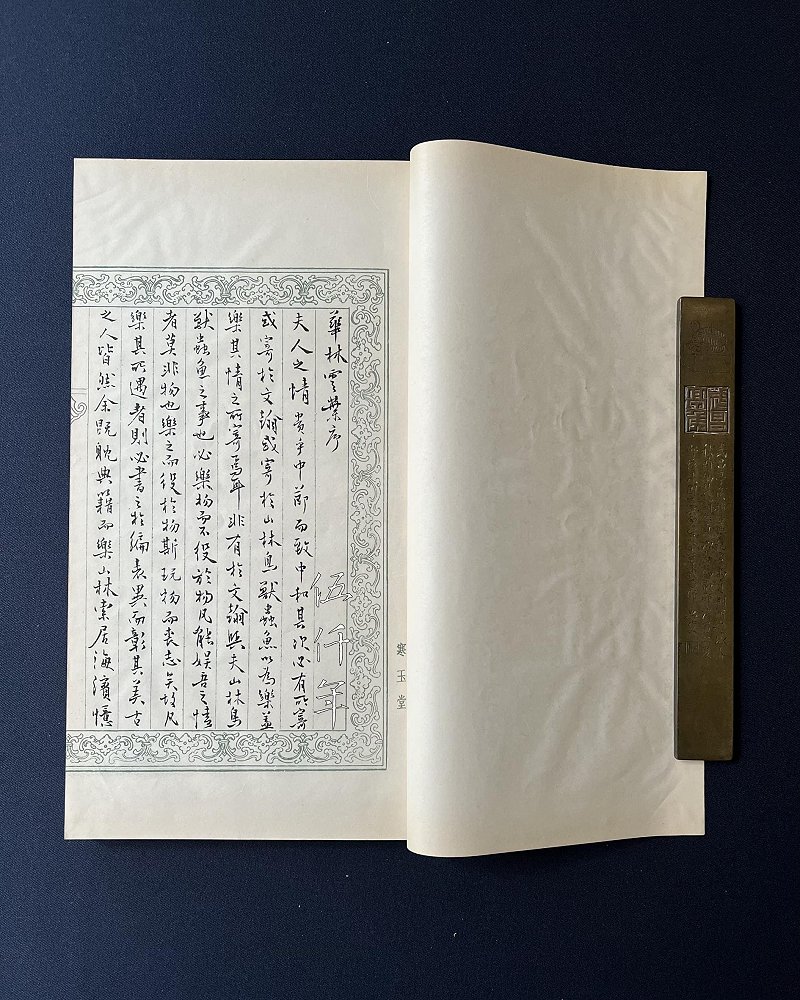 華林雲葉序
夫人之情貴乎中節而致中和其次必有所寄
或寄於文翰或寄於山林鳥獸蟲魚以為樂蓋
樂其情之所寄焉耳非有於文翰與夫山林鳥
獸蟲魚之事也必樂物而不役於物凡能娛吾之情
者莫非物也樂之而役於物斯玩物而喪志矣故凡
樂其所遇者則必書之於編表異而彰其美古
之人皆然余既耽典籍而樂山林索居海濱憶
伍仟年
寒玉堂